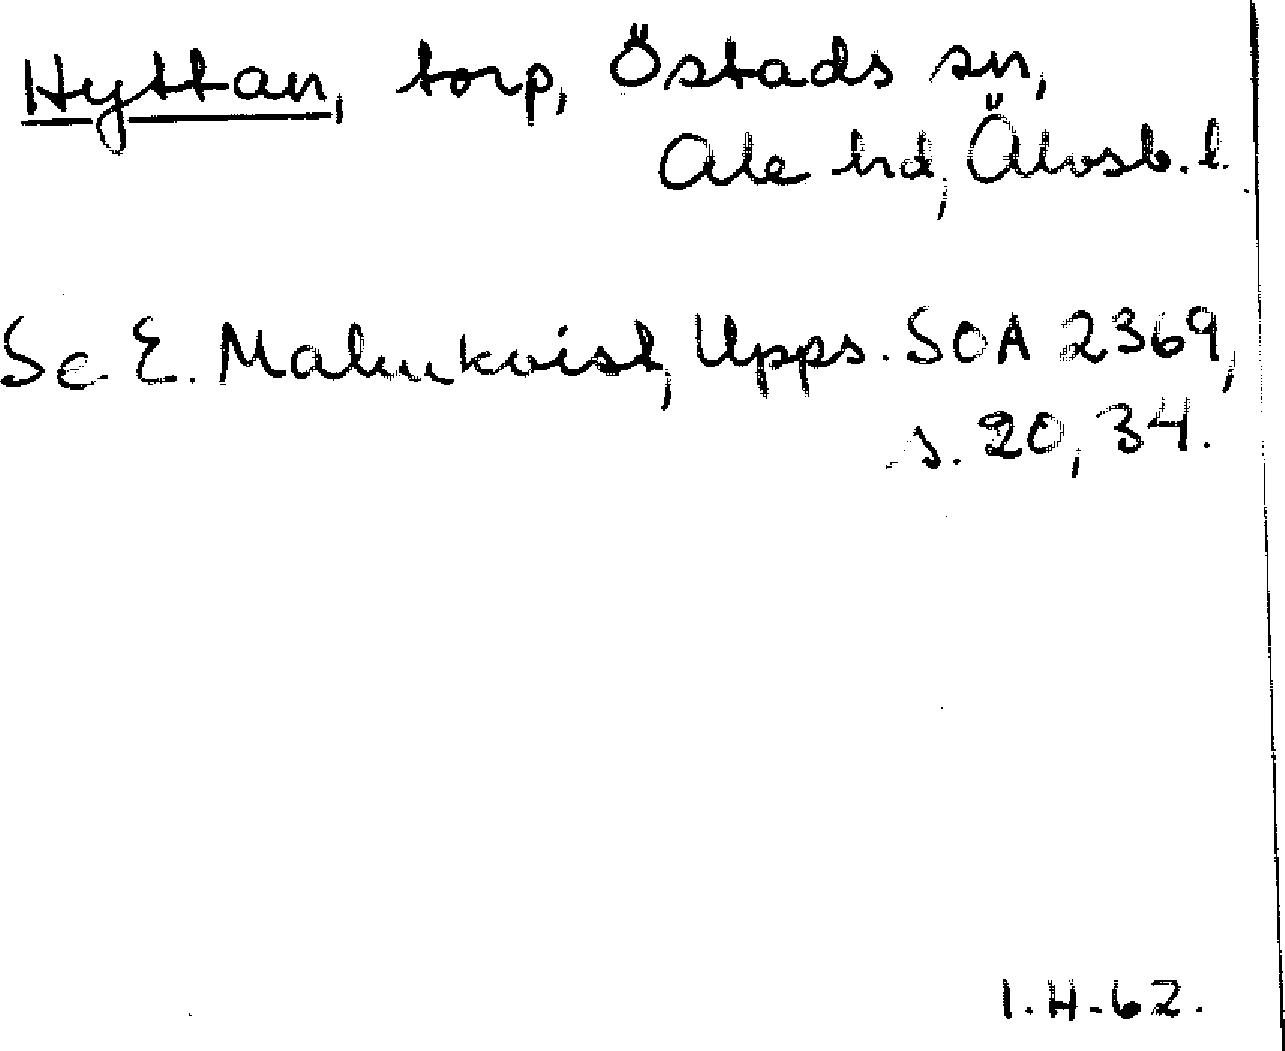 Hyttan, torp, Östads sn,
Ale hd, Älvsb. l.
Se E. Malmkvist, Upps. SOA 2369,
s. 20, 34.
I.H.62.